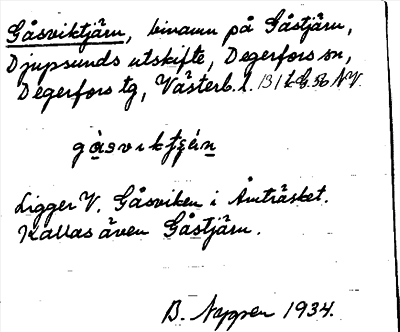 Gåsviktjärn, binamn på Gåstjärn,
Djupsunds utskifte, Degerfors sn,
Degerfors tg, Västerb. l.
gåsviktjärn
Ligger V. Gåsviken i Åmträsket.
Kallas även Gåstjärn.
B. Nygren 1934.